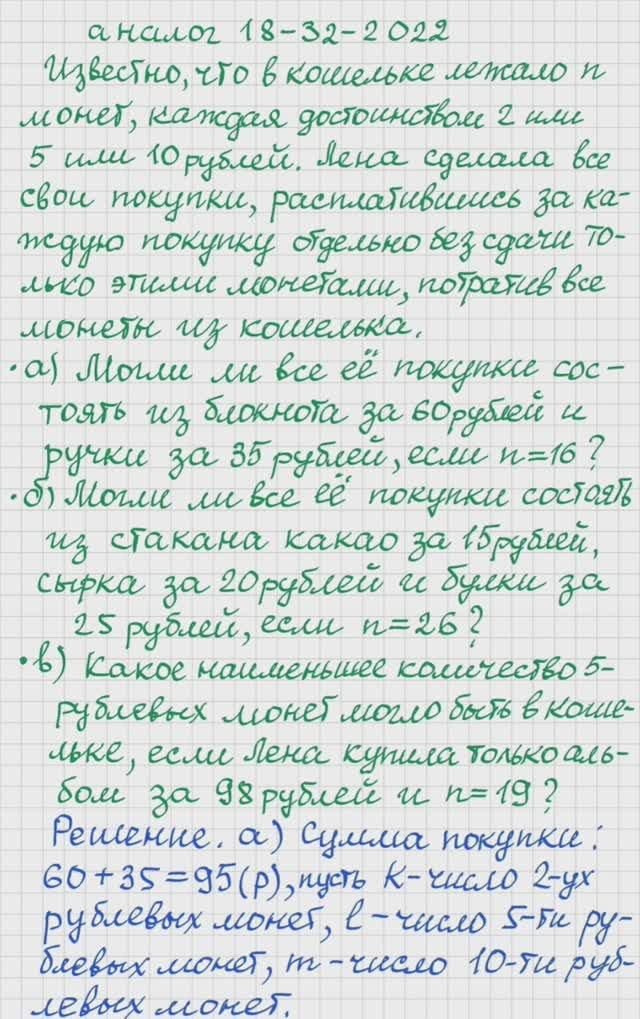 аналог 18-32-2022
Известно, что в кошельке лежало n
монет, каждая достоинством 2 или
5 или 10 рублей. Лена сделала все
свои покупки, расплатившись за ка-
ждую покупку отдельно без сдачи то-
лько этими монетами, потратив все
монеты из кошелька.
• а) Могли ли все её покупки сос-
тоять из блокнота за 60 рублей и
ручки за 35 рублей, если n=16?
• б) Могли ли все её покупки состоять
из стакана какао за 15 рублей,
сырка за 20 рублей и булки за
25 рублей, если n=26?
• в) Какое наименьшее количество 5-
рублевых монет могло быть в коше-
льке, если Лена купила только аль-
бом за 98 рублей и n=19?
Решение. а) Сумма покупки:
60+35=95(р), пусть k-число 2-ух
рублевых монет, l-число 5-ти ру-
блевых монет, m-число 10-ти руб-
левых монет.